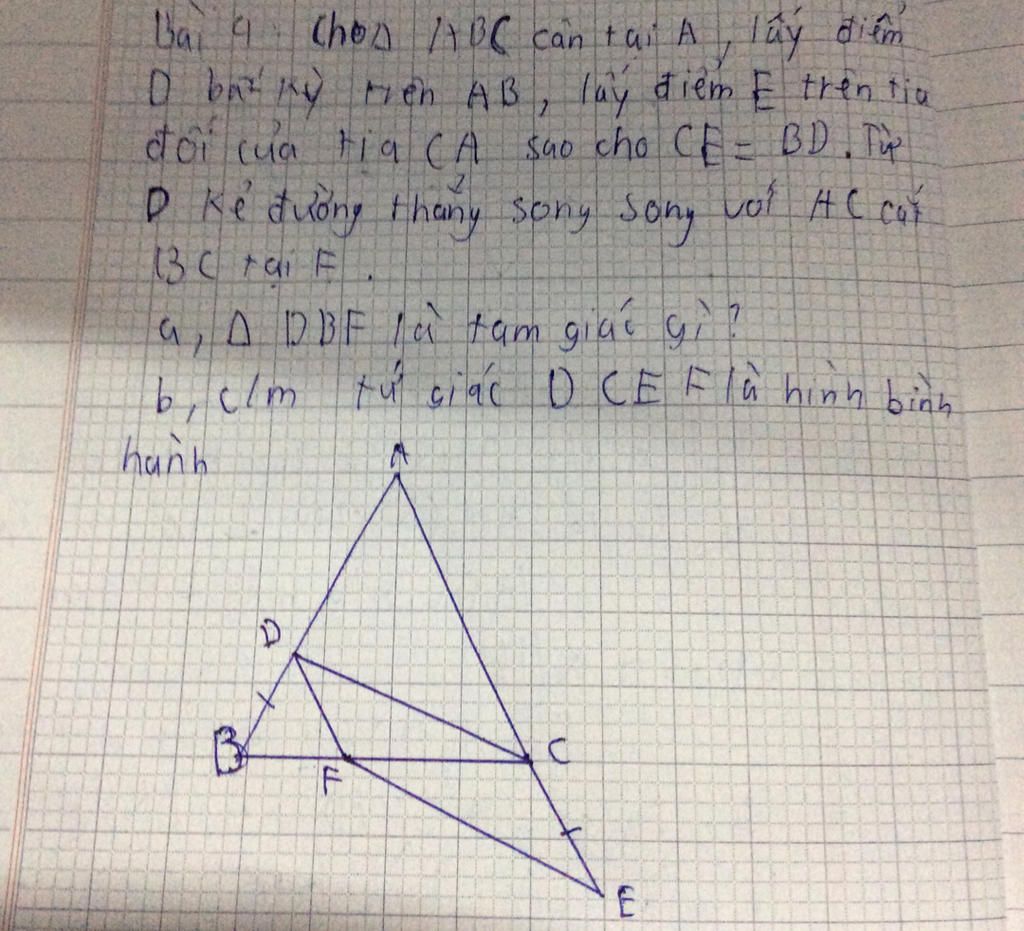 Bài 4: Cho Δ ABC cân tại A, lấy điểm
D bất kỳ trên AB, lấy điểm E trên tia
đối của tia CA sao cho CE = BD. Từ
D kẻ đường thẳng song song với AC cắt
BC tại F.
a, Δ DBF là tam giác gì?
b, c/m tứ giác DCEF là hình bình
hành
A
D
B
F
C
E